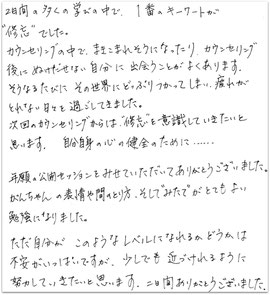 2日間の多くの学びの中で、1番のキーワードが
"修志"でした。
カウンセリングの中で、まきこまれそうになったり、カウンセリング
後にぬけだせない自分に出会うことがよくあります。
そうなるたびに その世界にどっぷりつかってしまい、疲れが
とれない日々を過ごしてきました。
次回のカウンセリングからは"修志"を意識していきたいと
思います。 自分自身の心の健全のために……
念願の公開セッションをみせていただいてありがとうございました。
がんちゃんの表情や間のとり方、そして"みたて"がとてもよい
勉強になりました。
ただ自分が このようなレベルになれるかどうかは
不安がいっぱいですが、少しでも 近づけれるように
努力していきたいと思います。二日間ありがとうございました。